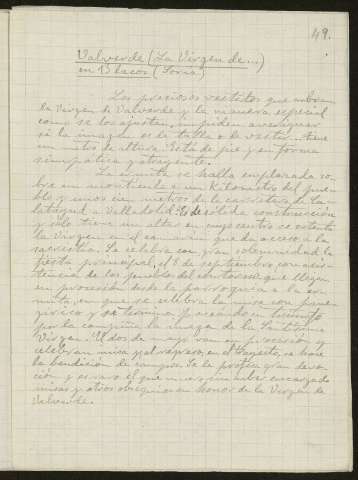 49.
Valverde (La Virgen de...)
en Blacos (Soria)
Los preciosos vestidos que cubren
la Virgen de Valverde y la manera especial
como se los ajustan, impiden averiguar
si la imagen es de talla o de vestir. Tiene
un metro de altura. Está de pie y en forma
simpática y atrayente.
La ermita se halla emplazada so-
bre un montículo a un kilómetro del pue-
blo y unos cien metros de la carretera de Ca-
latayud a Valladolid. Es de sólida construcción
y sólo tiene un altar en cuyo centro se ostenta
la Virgen en el camarín que da acceso a la
sacristía. Se celebra con gran solemnidad la
fiesta principal, el 8 de septiembre, con asis-
tencia de los pueblos del contorno, que llegan
en procesión desde la parroquia a la er-
mita, en que se celebra la misa con pane-
gírico y se termina paseando en triunfo
por la campiña la imagen de la Santísima
Virgen. El dos de mayo van en procesión y
celebran misa y al regreso, en el trayecto, se hace
la bendición de campos. Se le profesa gran devo-
ción y es raro el que muere sin haber encargado
misas y otros obsequios en honor de la Virgen de
Valverde.